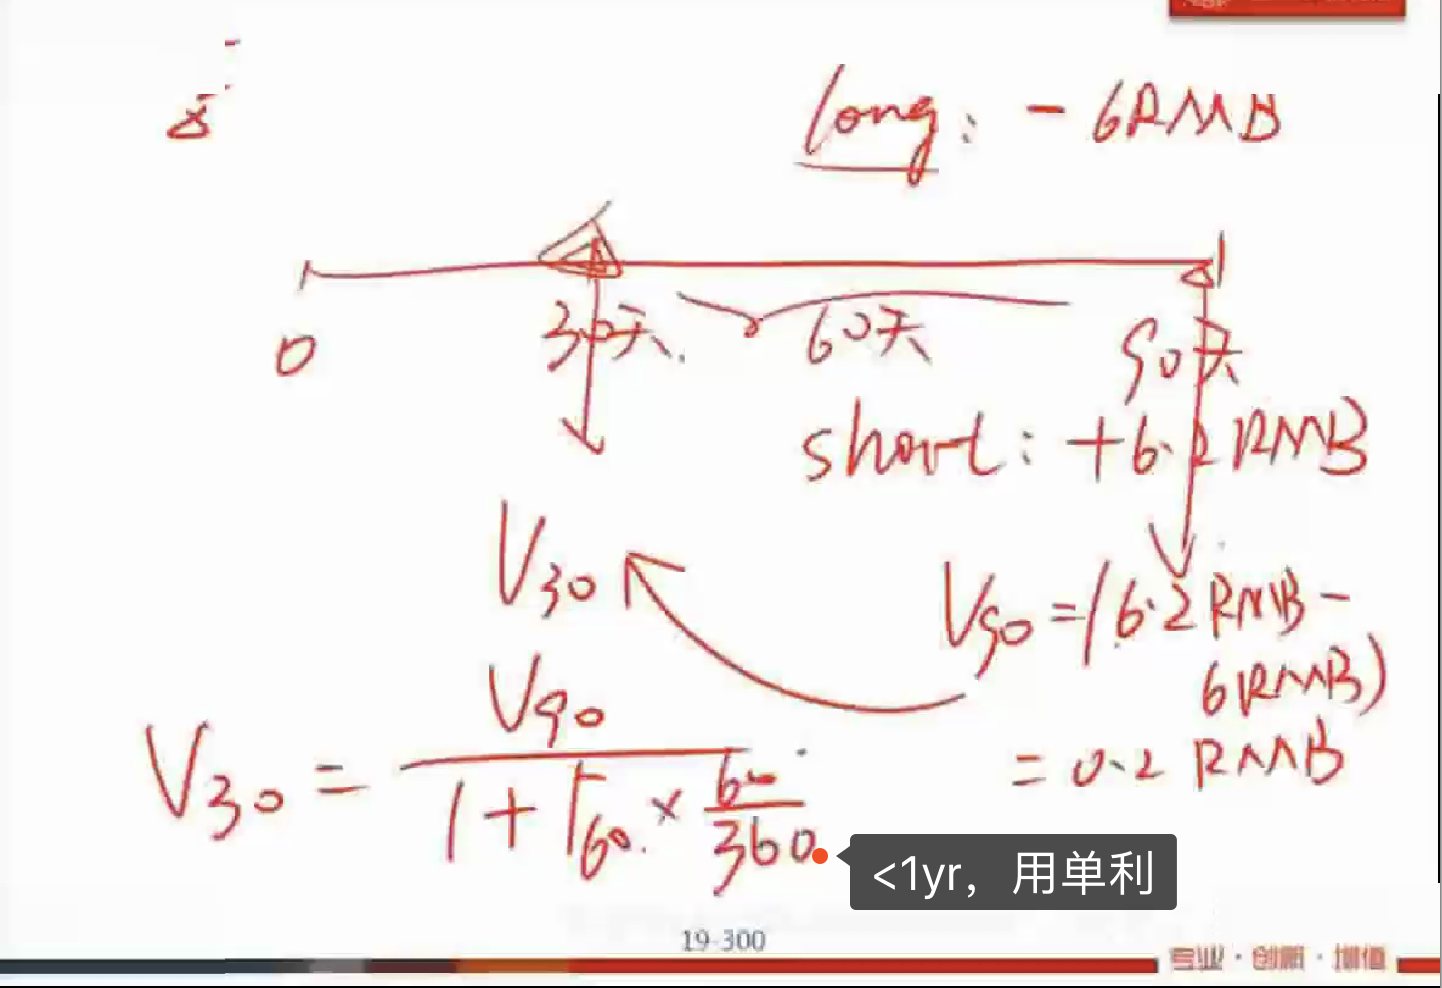 long: - 6RMB
0
30天
60天
90天
short: +6.2 RMB
V30
V90 = (6.2 RMB -
6RMB)
= 0.2 RMB
V90
V30 =
1 + r60 × 60/360
<1yr，用单利
19-300
专业·创新·增值